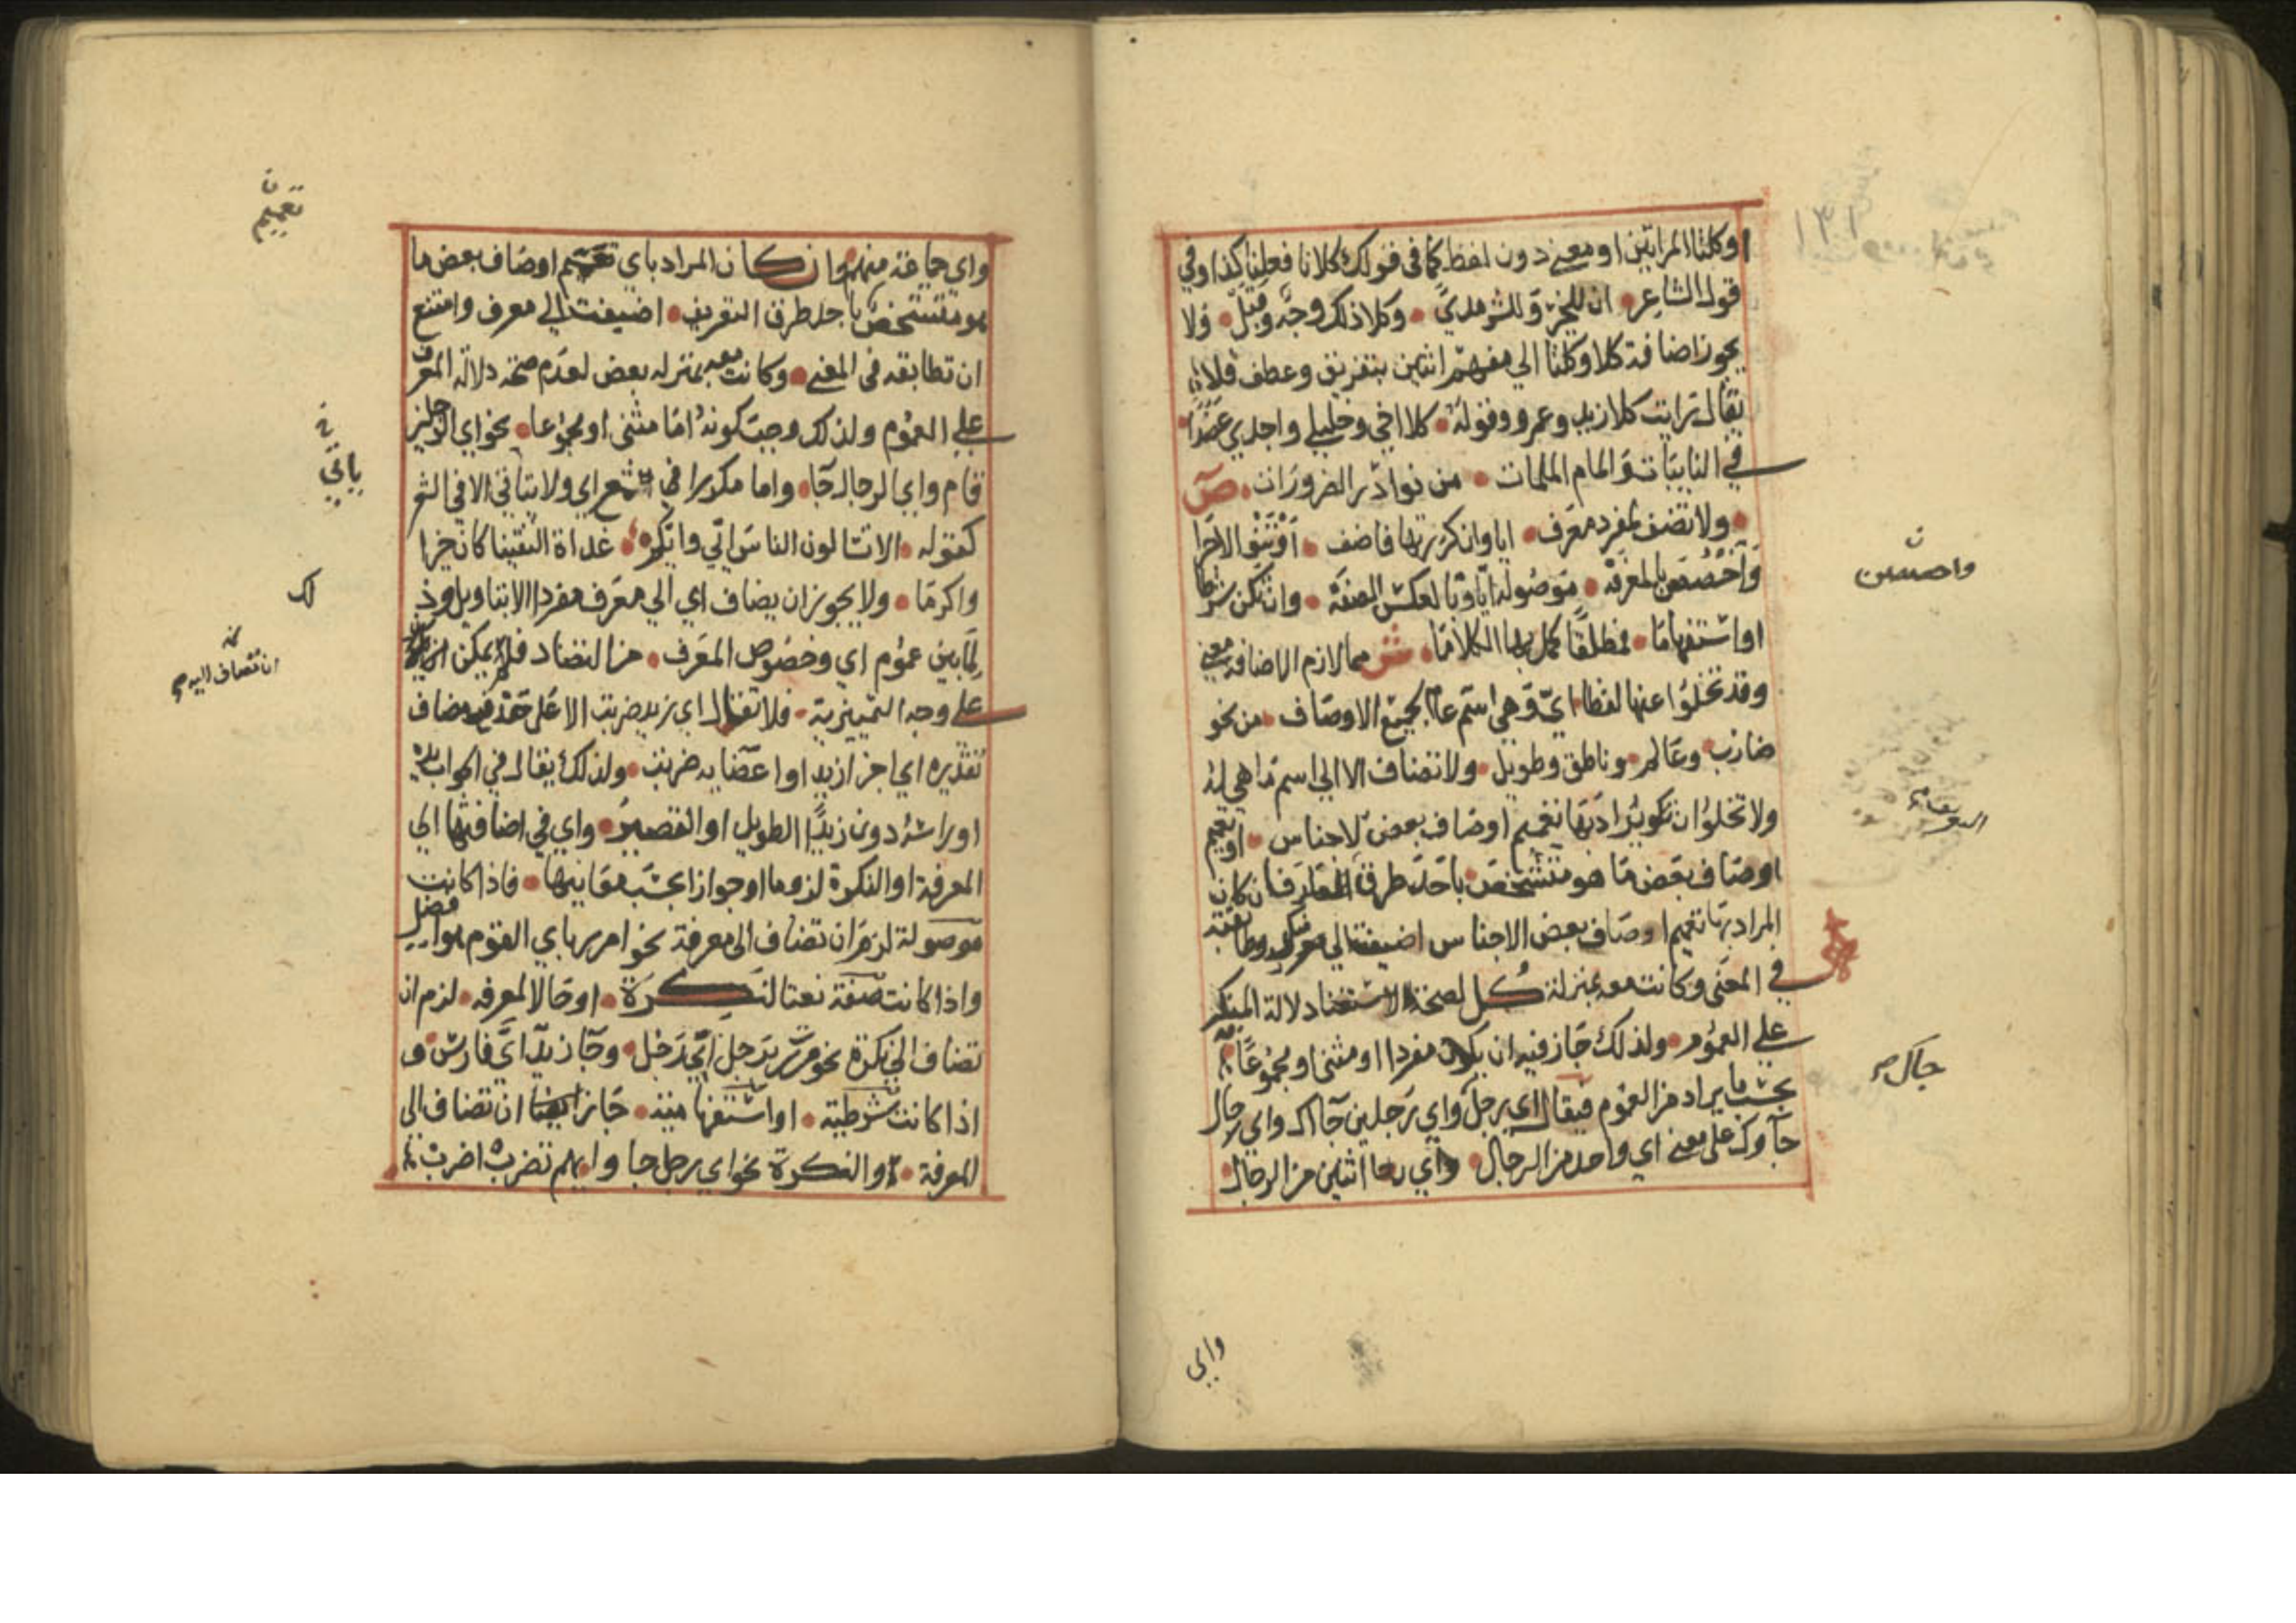 وكلتا المراتين او معنى دون لفظ كما في قولك كلانا فعلنا كذا وفي
قول الشاعر ان للخير وللشر مدي وكلا ذلك وجه وقبل ولا
يجوز اضافة كلا وكلتا الي مفهم اثنين بتفريق وعطف فلا
يقال رايت كلا زيد وعمرو وقوله كلا اخي وخليلي واجدي عضدا
في النايبات والمام الملمات من نوادر الضرورات ص
ولا تضف لمفرد معرف ايا وان كررتها فاضف او تنو الاجزا
واخصصن بالمعرفه موصولة ايا وبالعكس الصفة وان تكن شرطا
او استفهاما فمطلقا كمل بها الكلاما ش مما لازم الاضافة معنى
وقد تخلوا عنها لفظا اي وهي اسم عام لجميع الاوصاف من نحو
ضارب وعالم وناطق وطويل ولا تضاف الا الي اسم ما هي له
ولا تخلوا ان يكون يراد بها تعميم اوصاف بعض الاجناس او تعميم
اوصاف بعض ما هو متشخص باحد طرق التعريف فان كان
المراد بها تعميم اوصاف بعض الاجناس اضيفت الي منكر وطابقته
في المعنى وكانت معه بمنزلة كل لصحة دلالة المنكر
على العموم ولذلك جاز فيه ان يكون مفردا او مثنى او مجموعا
بحسب ما يراد من العموم فيقال اي رجل واي رجلين جاك واي رجال
جاوك على معنى اي واحد من الرجال واي اثنين من الرجال
واحصصن
جاك
واي
واي جماعة منهم وان كان المراد باي تعميم اوصاف بعض ما
هو متشخص باحد طرق التعريف اضيفت الي معرف وامتنع
ان تطابقه في المعنى وكانت معه بمنزلة بعض لعدم صحة دلالة المعرف
على العموم ولذلك وجب كونه اما مثنى او مجموعا نحو اي الرجلين
قام واي الرجال جا واما مكررا مع اي ولا ياتي الا في الشعر
كقوله الا تسالون الناس ايي وايكم غداة التقينا كان خيرا
واكرما ولا يجوز ان يضاف اي الي معرف مفردا الا بتاويل وذ
لما بين عموم اي وخصوص المعرف من التضاد فلا يمكن
على وجه التمييزية فلا تقال اي زيد ضربت الا على حذف مضاف
تقديره اي اجزا زيد او اعضايه ضربت ولذلك يقال في الجواب يده
او راسه دون زيدا الطويل او القصير واي في اضافتها الي
المعرفة او النكرة لزوما او جوازا بحسب معانيها فاذا كانت
موصولة لزم ان تضاف الى معرفة نحو امرر باي القوم هو افضل
واذا كانت صفة نعتا لنكرة او حالا لمعرفه لزم ان
تضاف الي نكرة نحو مررت برجل اي رجل وجا زيد اي فارس و
اذا كانت شرطية او استفهامية جاز ان تضاف الى
المعرفة والنكرة نحو اي رجل جا وايهم تضرب اضرب
تعميم
ياتي
لك
ان تضاف اليه